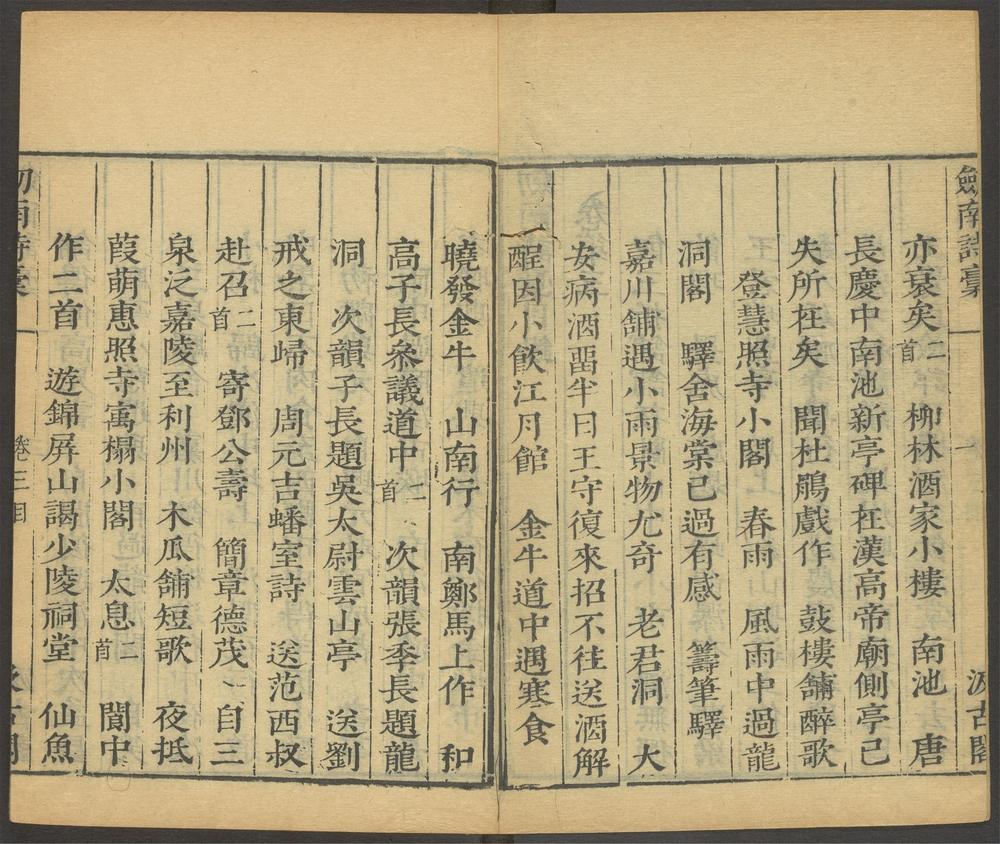 劍南詩稾
汲古閣
亦衰矣二首　柳林酒家小樓　南池　唐
長慶中南池新亭碑在漢高帝廟側亭已
失所在矣　聞杜鵑戲作　鼓樓舖醉歌
登慧照寺小閣　春雨　風雨中過龍
洞閣　驛舍海棠已過有感　籌筆驛
嘉川舖遇小雨景物尤奇　老君洞　大
安病酒畱半日王守復來招不往送酒解
酲因小飲江月館　金牛道中遇寒食
曉發金牛　山南行　南鄭馬上作　和
高子長叅議道中二首　次韻張季長題龍
洞　次韻子長題吳太尉雲山亭　送劉
戒之東歸　周元吉蟠室詩　送范西叔
赴召二首　寄鄧公壽　簡章德茂　自三
泉泛嘉陵至利州　木瓜舖短歌　夜抵
葭萌惠照寺寓榻小閣　太息二首　閬中
作二首　遊錦屏山謁少陵祠堂　仙魚
卷三目